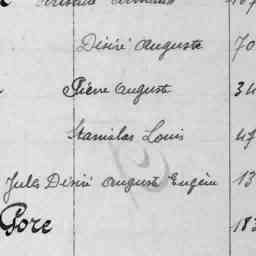 Désiré Auguste 70
Pierre Auguste 34
Stanislas Louis 47
Jules Désiré Auguste Eugène 13
Gore 183